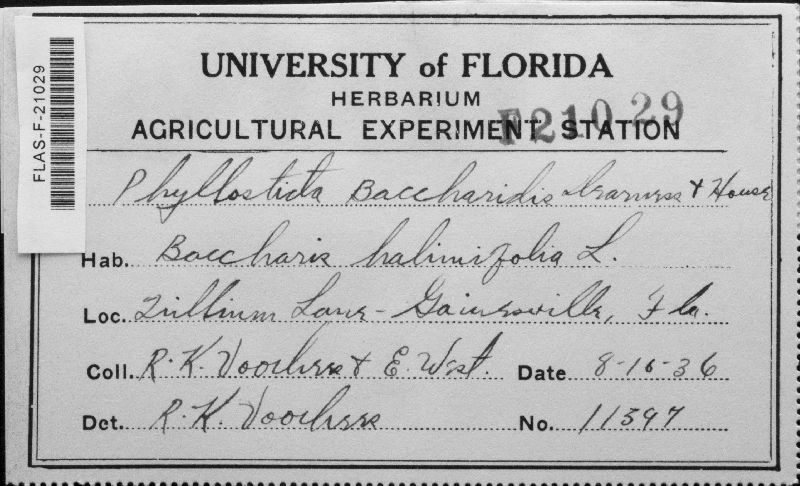 FLAS-F-21029
UNIVERSITY of FLORIDA
HERBARIUM
F21029
AGRICULTURAL EXPERIMENT STATION
Phyllosticta Baccharidis Dearness & House
Hab. Baccharis halimifolia L.
Loc. Trillium Lane - Gainesville, Fla.
Coll. R. K. Voorhees & E. West. Date 8-16-36
Det. R. K. Voorhees No. 11397